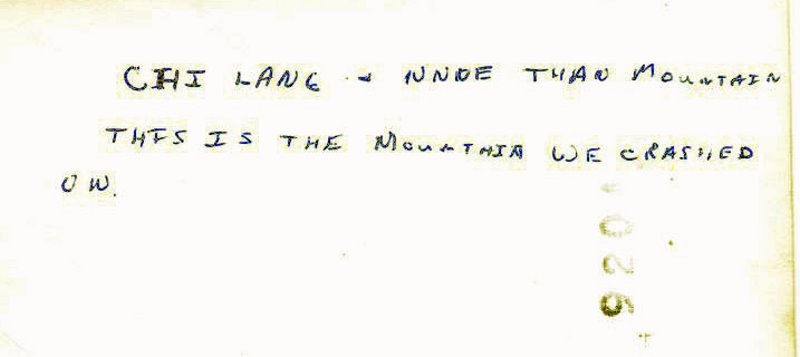 CHI LANG - NNDE THAN MOUNTAIN
THIS IS THE MOUNTAIN WE CRASHED
ON.
920